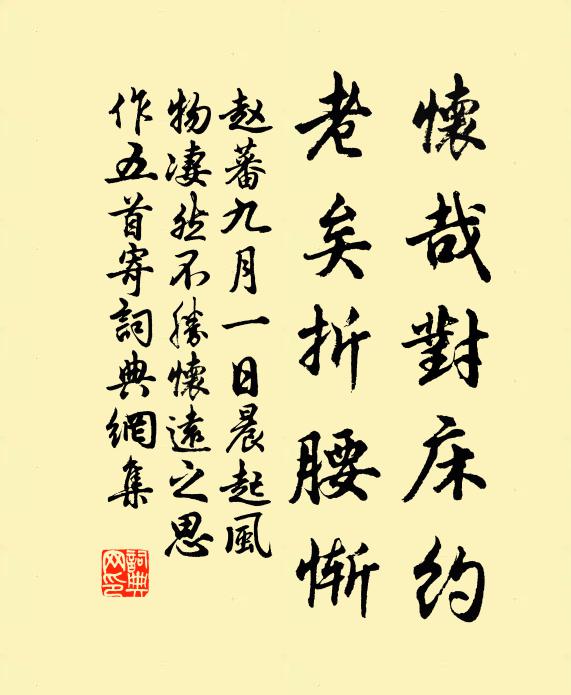 懷哉對床約
老矣折腰慚
赵蕃九月一日晨起風
物凄然不勝懷遠之思
作五首寄詞典網集
詞典网印